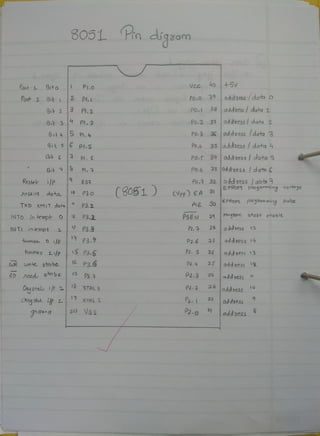 8051 Pin digram
Port 1 Bit 0 1 P1.0 Vcc 40 +5V
Port 1 Bit 1 2 P1.1 P0.0 39 address / data 0
Bit 2 3 P1.2 P0.1 38 address / data 1
Bit 3 4 P1.3 P0.2 37 address / data 2
Bit 4 5 P1.4 P0.3 36 address / data 3
Bit 5 6 P1.5 P0.4 35 address / data 4
Bit 6 7 P1.6 P0.5 34 address / data 5
8 P1.7 P0.6 33 address / data 6
Reset i/p 9 RST P0.7 32 address / data 7
receive data 10 P3.0 (8051) (Vpp) EA 31 EPROM programming voltage
TXD xmit data P3.1 ALE 30 EPROM programming pulse
INT0 interrupt 0 12 P3.2 PSEN 29 program store enable
INT1 interrupt 1 13 P3.3 P2.7 28 address 15
timer 0 i/p 14 P3.4 P2.6 27 address 14
timer 1 i/p 15 P3.5 P2.5 26 address 13
WR write strobe 16 P3.6 P2.4 25 address 12
RD read strobe P3.7 P2.3 24 address
Crystal i/p 2 18 XTAL2 P2.2 23 address 10
Crystal i/p 1 19 XTAL1 P2.1 22 address 9
ground 20 VSS P2.0 21 address 8